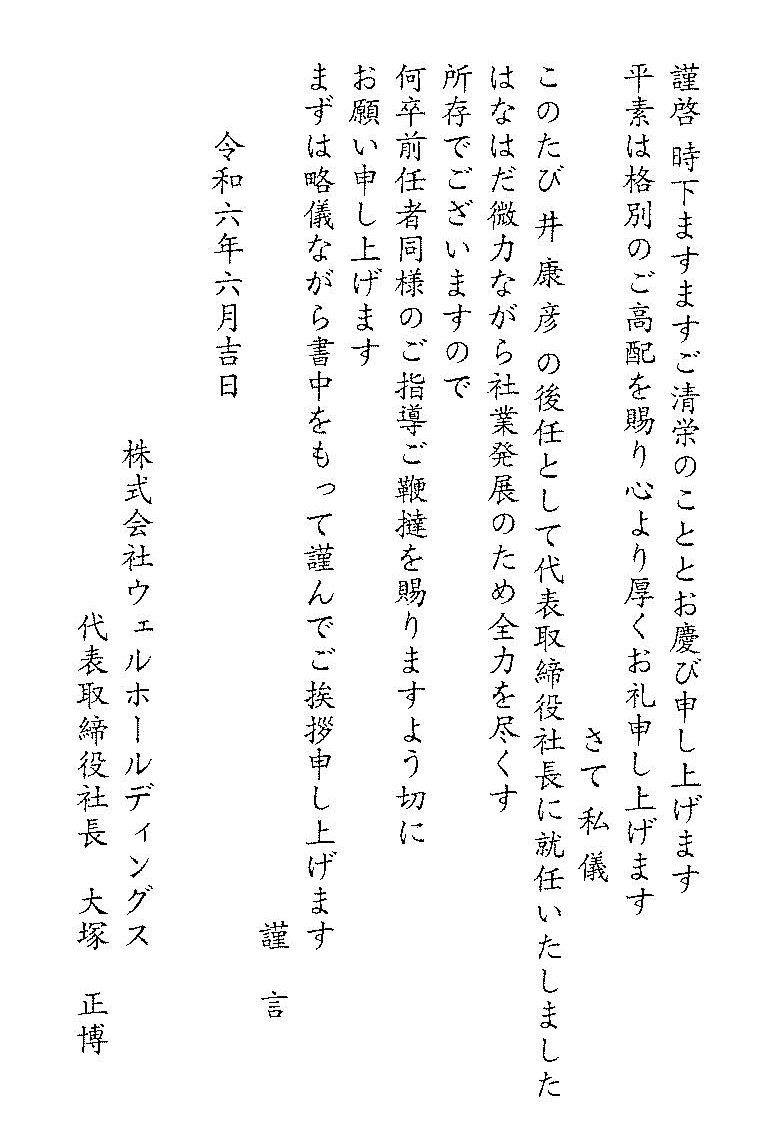 謹啓 時下ますますご清栄のこととお慶び申し上げます
平素は格別のご高配を賜り心より厚くお礼申し上げます
さて 私 儀
このたび 井 康 彦 の後任として代表取締役社長に就任いたしました
はなはだ微力ながら社業発展のため全力を尽くす
所存でございますので
何卒前任者同様のご指導ご鞭撻を賜りますよう切に
お願い申し上げます
まずは略儀ながら書中をもって謹んでご挨拶申し上げます
謹 言
令和六年六月吉日
株式会社ウェルホールディングス
代表取締役社長 大塚 正博